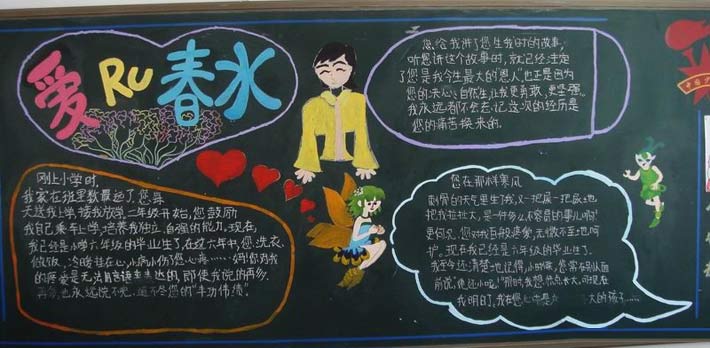 爱RU春水
您给我讲了您生我时的故事,
听您讲这个故事时,就已经注定
了您是我今生最大的"恩人"也正是因为
您的
自然生让我更勇敢、更坚强。
我永远都不会忘记这次的经历是
您的痛苦换来的。
刚上小学时,
我家在班里数最远了,您每
天送我上学,接我放学,二年级开始,您鼓励
我自己乘车上学,培养我独立、自强的能力。现在,
我已经是小学六年级的毕业生了,在这六年中,您洗衣、
做饭、冷暖挂在心,小病小伤了您心疼……妈!您对我
的疼爱是无法用言语来表达的,即使我说的再多,
再多,也永远说不完,道不尽您的"丰功伟绩"。
您在那样寒风
刺骨的天气里生了我,又一把屎一把尿地
把我拉扯大,是一件多么不容易的事儿啊!
更何况,您对我百般疼爱,无微不至地呵
护。现在我已经是六年级的毕业生了。
我至今还清楚地记得,小时候,您常
"那时我想快点长大,可现在
我明明,我在您心中是
大的孩子……